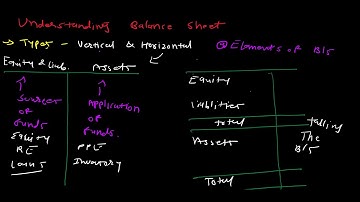 Understanding Balance Sheet
→ Types - Vertical & Horizontal
Equity & Liab. Assets
Sources Application
of of
funds funds.
Equity PPE
RE Inventory
Loans
② Elements of B/S
Equity
Liabilities
Total
Assets
Total
Tallying
The
B/S